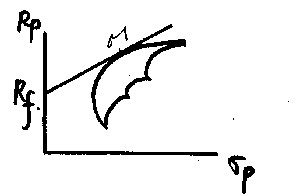 Rp
M
Rf
σp